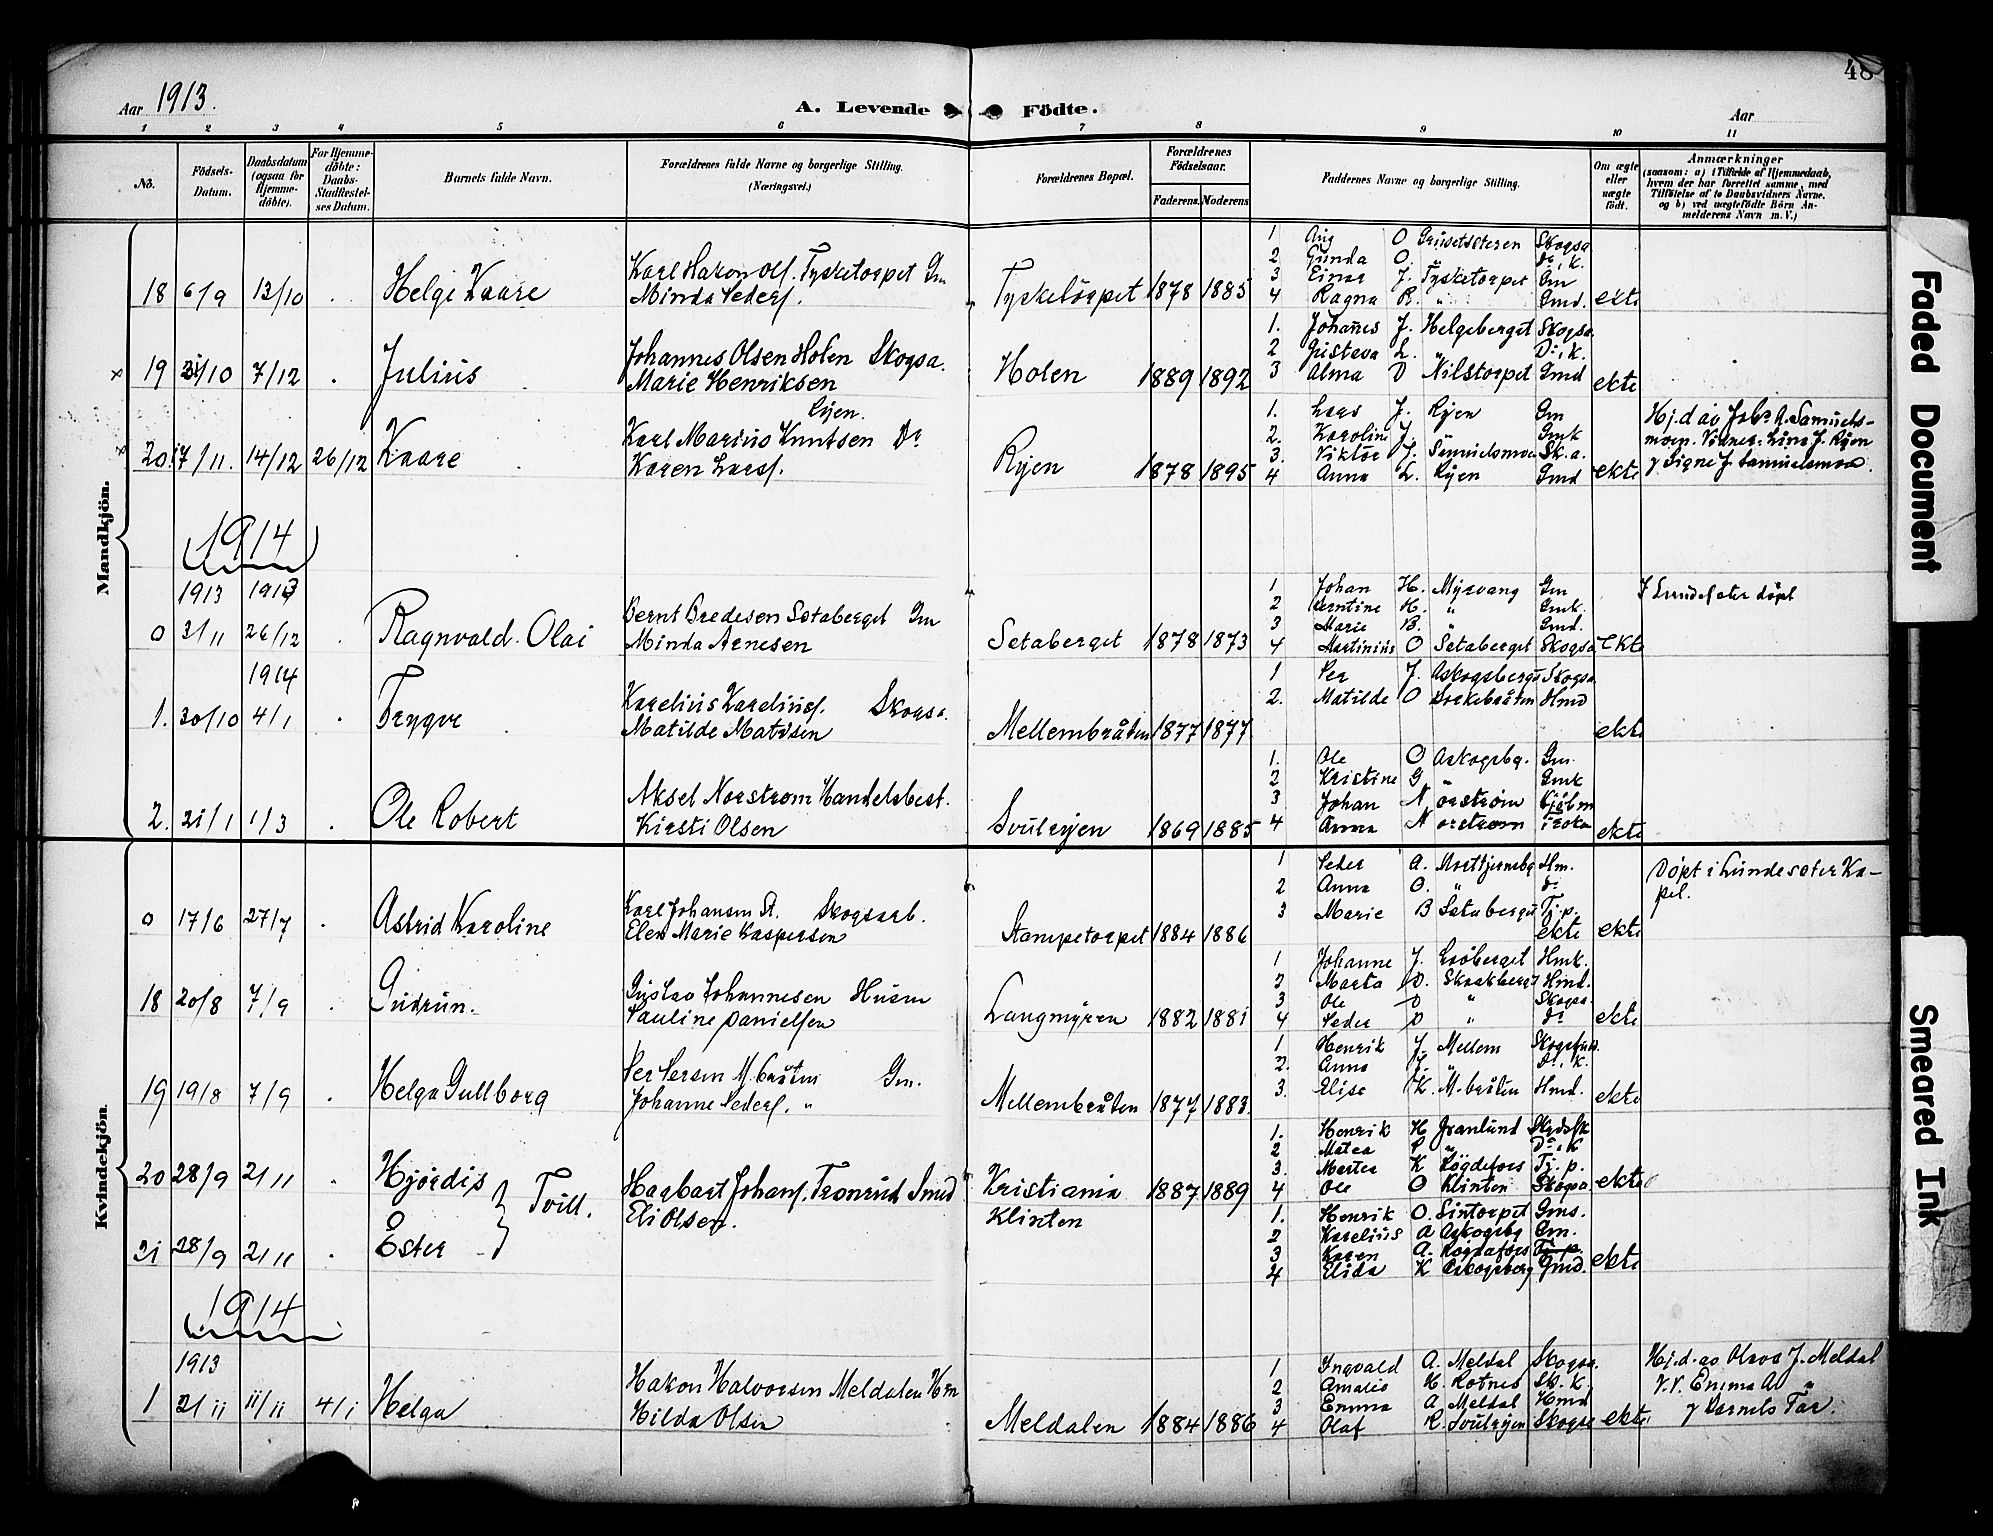 48
Aar 1913.
A. Levende Födte.
Aar
1 2 3 4 5 6 7 8 9 10 11
No.
Födsels-Datum.
Daabsdatum (ogsaa for Hjemme-döbte).
For Hjemme-döbte: Daabs-Stadfæstel-ses Datum.
Barnets fulde Navn.
Forældrenes fulde Navne og borgerlige Stilling. (Næringsvei.)
Forældrenes Bopæl.
Forældrenes Födselsaar.
Faderens. Moderens.
Faddernes Navne og borgerlige Stilling.
Om ægte eller uægte födt.
Anmærkninger
(saasom: a) i Tilfælde af Hjemmedaab,
hvem der har forrettet samme, med
Tilföielse af to Daabsvidners Navne.
og b) ved uægtefödte Börn An-
melderens Navn m. V.)
Mandkjön.
18 6/9 13/10 . Helge Kaare
Karl Hakon Olf. Tysketorpet Gm
Minda Peders.
Tysketorpet 1878 1885
1 Aug O Grusetsteren Skogsa
2 Gunda O. " Do, k.
3 Einar J. Tysketorpet Gm
4 Ragna R. " Gmd. ekte
x 19 31/10 7/12 . Julius
Johannes Olsen Holen Skogsa.
Marie Henriksen
Holen 1889 1892
1. Johañes J. Helgeberget Skogsa.
2 Gustava L. " Do, k.
3 Alma O Nilstorpet Gmd ekte
x 20. 17/11. 14/12 26/12 Kaare
Ryen.
Karl Marius Knutsen Do
Karen Larsf.
Ryen 1878 1895
1. Lars J. Ryen Gm
2. Karoline J. " Gmk
3. Viktor J. Samuelsmoen Sk.a.
4 Anna L. Ryen Gmd ekte
Hj.d av Johs A. Samuels-
moen. Vidner: Lina J. Ryen
& Signe J. Samuelsmoa.
1914
1913 1913
0 3/11 26/12 . Ragnvald Olai
Bernt Bredesen Sætaberget Gm
Minda Arnesen
Setaberget 1878 1873
1 Johan H. Myrvang Gm
2 Berntine H. " Gmk.
3 Marie B. " Gmd.
4 Martinius O Setaberget Skogsa Ekte
I Lundesæter döpt
1914
1. 30/10 4/1 . Trygve
Karelius Kareliusf. Skogsa.
Matilde Matisen
Mellembråten 1877 1877
1. Per J. Askogsberget Skogsa.
2. Matilde O Brekkebråten Hmd
ekte
2. 21/1 1/3 . Ole Robert
Aksel Norstrøm Handelsbest.
Kirsti Olsen
Svulryen 1869 1885
1. Ole O Askogsbg. Gm.
2 Kristine G " Gmk
3 Johan Norstrøm Kjøbm
4 Anna Norstrøm Frøkn ekte
Kvindekjön.
0 17/6 27/7 . Astrid Karoline
Karl Johansen St. Skogsarb.
Elen Marie Kaspersen
Stampetorpet 1884 1886
1 Peder A. Morttjernsbg Hm.
2 Anna O. " do
3 Marie B Sætaberget Tj.p.
ekte ekte
Döpt i Lundesæter Ka-
pel.
18 20/8 7/9 . Gudrun.
Gustav Johannesen Husm
Pauline Danielsen
Langmyren 1882 1881
1 Johanne J. Løvberget Hmk.
2 Marta D. Skrakberget Hmd.
3 Ole D " Skogsa.
4 Peder D " Do ekte
19 19/8 7/9 . Helga Gullborg
Per Persen M.bråten Gm.
Johanne Pedersf. "
Mellembråten 1877 1883.
1 Henrik J. Mellem Skogsfuld.
2. Anna J. " Do, K.
3. Elise K. M.bråten Hmd. ekte
20 28/9 2/11 . Hjørdis
} Tvill.
Harbart Johansf. Tronrud Smed
Eli Olsen.
Kristiania 1887 1889
Klinten
1. Henrik H Granlund Skydssk
2 Matea P " Do, K
3. Martea K Røgdefors Tj. p.
4 Ole O Klinten Skogsa. ekte
21 28/9 2/11 . Ester
1. Henrik O. Sintorpet Gms.
2 Karelius A Askogsbg Gm.
3 Karen A. Rogdafors Tj.p.
4 Elida K Askogsberg Gmd. ekte
1914
1913
1 2/11 11/11 4/1 Helga
Hakon Halvorsen Meldalen Hm
Hilda Olsen
Meldalen 1884 1886
1 Ingvald A. Meldal Skogsa.
2 Amalie H. Rotnes Sk. K
3 Emma A Meldal Hmd
4 Olaf R. Svulryen Skogsa ekte
Hj.d. av Olava J. Meldal
V.V. Emma A "
& Barnets Far.
Faded Document
Smeared Ink